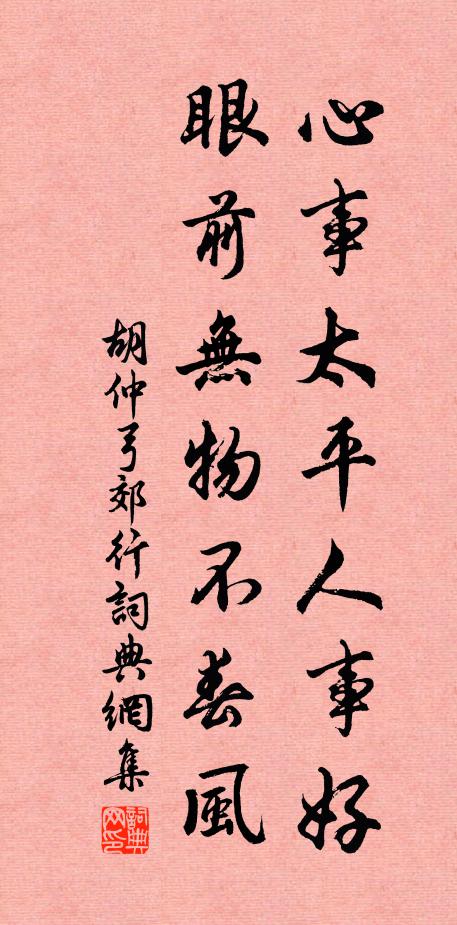 心事太平人事好
眼前無物不春風
胡仲弓郊行詞典網集
詞典网印